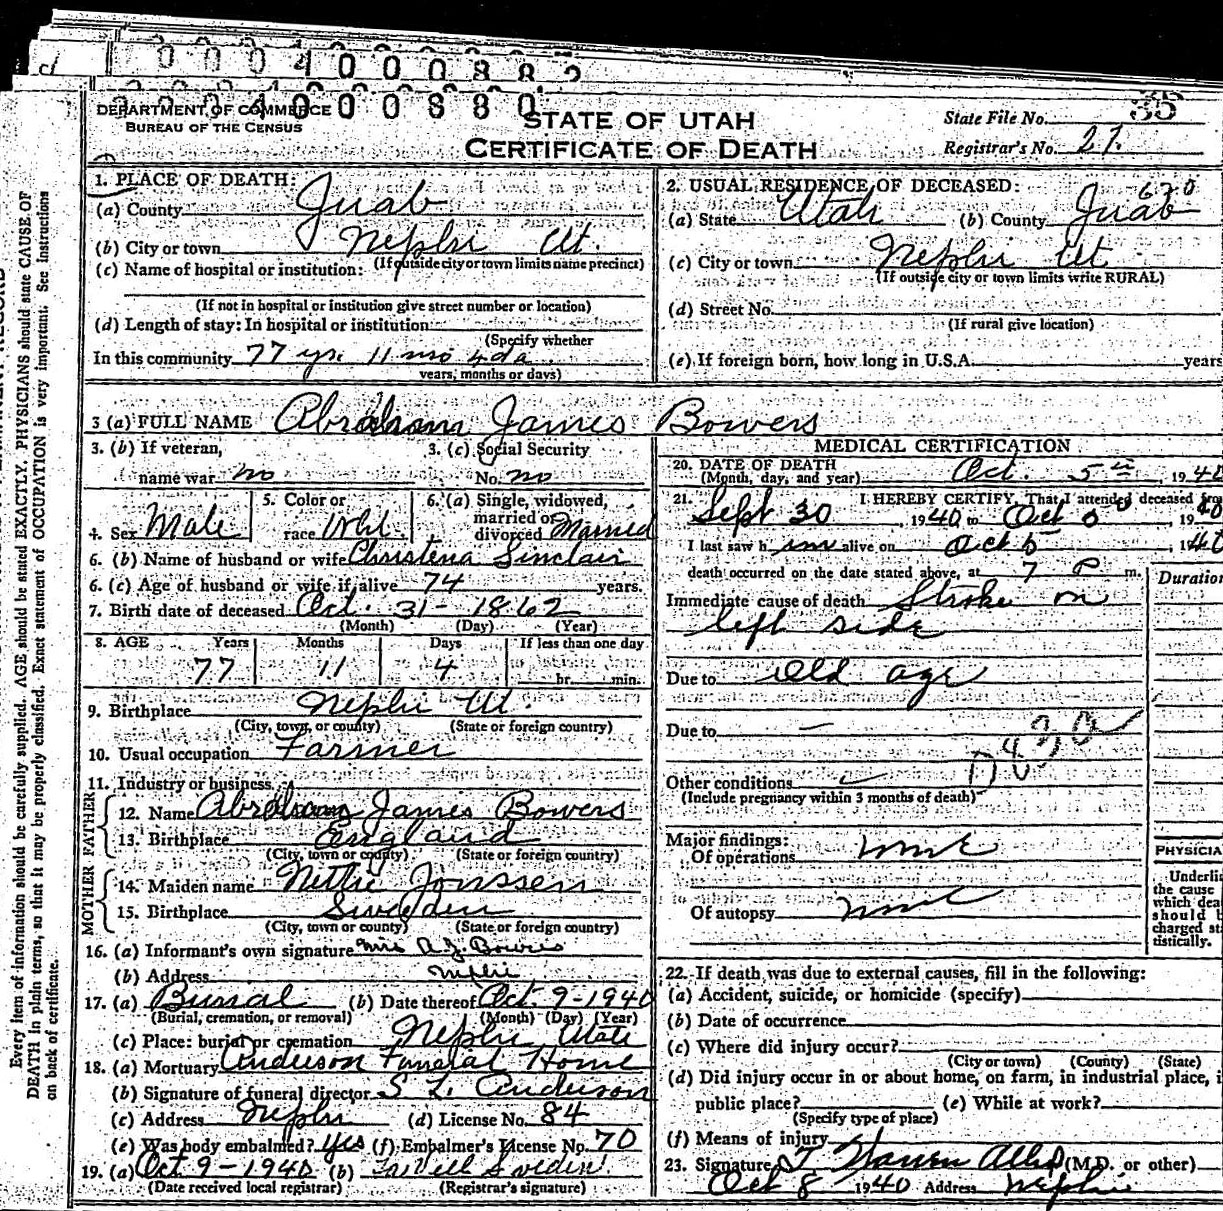 0 0 0 4 0 0 0 8 8 2
0 0 0 4 0 0 0 8 8 0
DEPARTMENT OF COMMERCE
BUREAU OF THE CENSUS
STATE OF UTAH
CERTIFICATE OF DEATH
State File No. 35
Registrar's No. 27.
1. PLACE OF DEATH:
(a) County Juab
(b) City or town Nephi Ut.
(If outside city or town limits name precinct)
(c) Name of hospital or institution:
(If not in hospital or institution give street number or location)
(d) Length of stay: In hospital or institution
(Specify whether
In this community 77 yr. 11 mo 4 da
years, months or days)
2. USUAL RESIDENCE OF DECEASED: 620
(a) State Utah (b) County Juab
(c) City or town Nephi Ut
(If outside city or town limits write RURAL)
(d) Street No.
(If rural give location)
(e) If foreign born, how long in U.S.A. years
3 (a) FULL NAME Abraham James Bowers
3. (b) If veteran,
name war no
3. (c) Social Security
No. no
4. Sex Male
5. Color or
race Wht.
6. (a) Single, widowed,
married or
divorced Married
6. (b) Name of husband or wife Christena Sinclair
6. (c) Age of husband or wife if alive 74 years.
7. Birth date of deceased Oct. 31 - 1862
(Month) (Day) (Year)
8. AGE Years Months Days If less than one day
77 11 4 hr. min.
9. Birthplace Nephi Ut.
(City, town, or county) (State or foreign country)
10. Usual occupation Farmer
11. Industry or business
FATHER
12. Name Abraham James Bowers
13. Birthplace England
(City, town or county) (State or foreign country)
MOTHER
14. Maiden name Nettie Jonssen
15. Birthplace Sweden
(City, town or county) (State or foreign country)
16. (a) Informant's own signature Mrs A. J. Bowers
(b) Address Nephi
17. (a) Burial (b) Date thereof Oct. 9-1940
(Burial, cremation, or removal) (Month) (Day) (Year)
(c) Place: burial or cremation Nephi Utah
18. (a) Mortuary Anderson Funeral Home
(b) Signature of funeral director S L. Anderson
(c) Address Nephi (d) License No. 84
(e) Was body embalmed? yes (f) Embalmer's License No. 70
19. (a) Oct 9-1940 (b)
(Date received local registrar) (Registrar's signature)
MEDICAL CERTIFICATION
20. DATE OF DEATH
(Month, day, and year) Oct. 5th, 1940
21. I HEREBY CERTIFY, That I attended deceased from
Sept 30, 1940 to Oct 5, 1940
I last saw him alive on Oct 5, 1940
death occurred on the date stated above, at 7 P m.
Duration
Immediate cause of death Stroke on
left side
Due to Old age
Due to —
Other conditions
(Include pregnancy within 3 months of death)
Major findings:
Of operations none
Of autopsy none
PHYSICIA
Underli
the cause
which dea
should b
charged sta
tistically.
22. If death was due to external causes, fill in the following:
(a) Accident, suicide, or homicide (specify)
(b) Date of occurrence
(c) Where did injury occur?
(City or town) (County) (State)
(d) Did injury occur in or about home, on farm, in industrial place, i
public place? (e) While at work?
(Specify type of place)
(f) Means of injury
23. Signature (M.D. or other)
Oct 8 1940 Address Nephi
Every item of information should be carefully supplied. AGE should be stated EXACTLY. PHYSICIANS should state CAUSE OF
DEATH in plain terms, so that it may be properly classified. Exact statement of OCCUPATION is very important. See Instructions
on back of certificate.